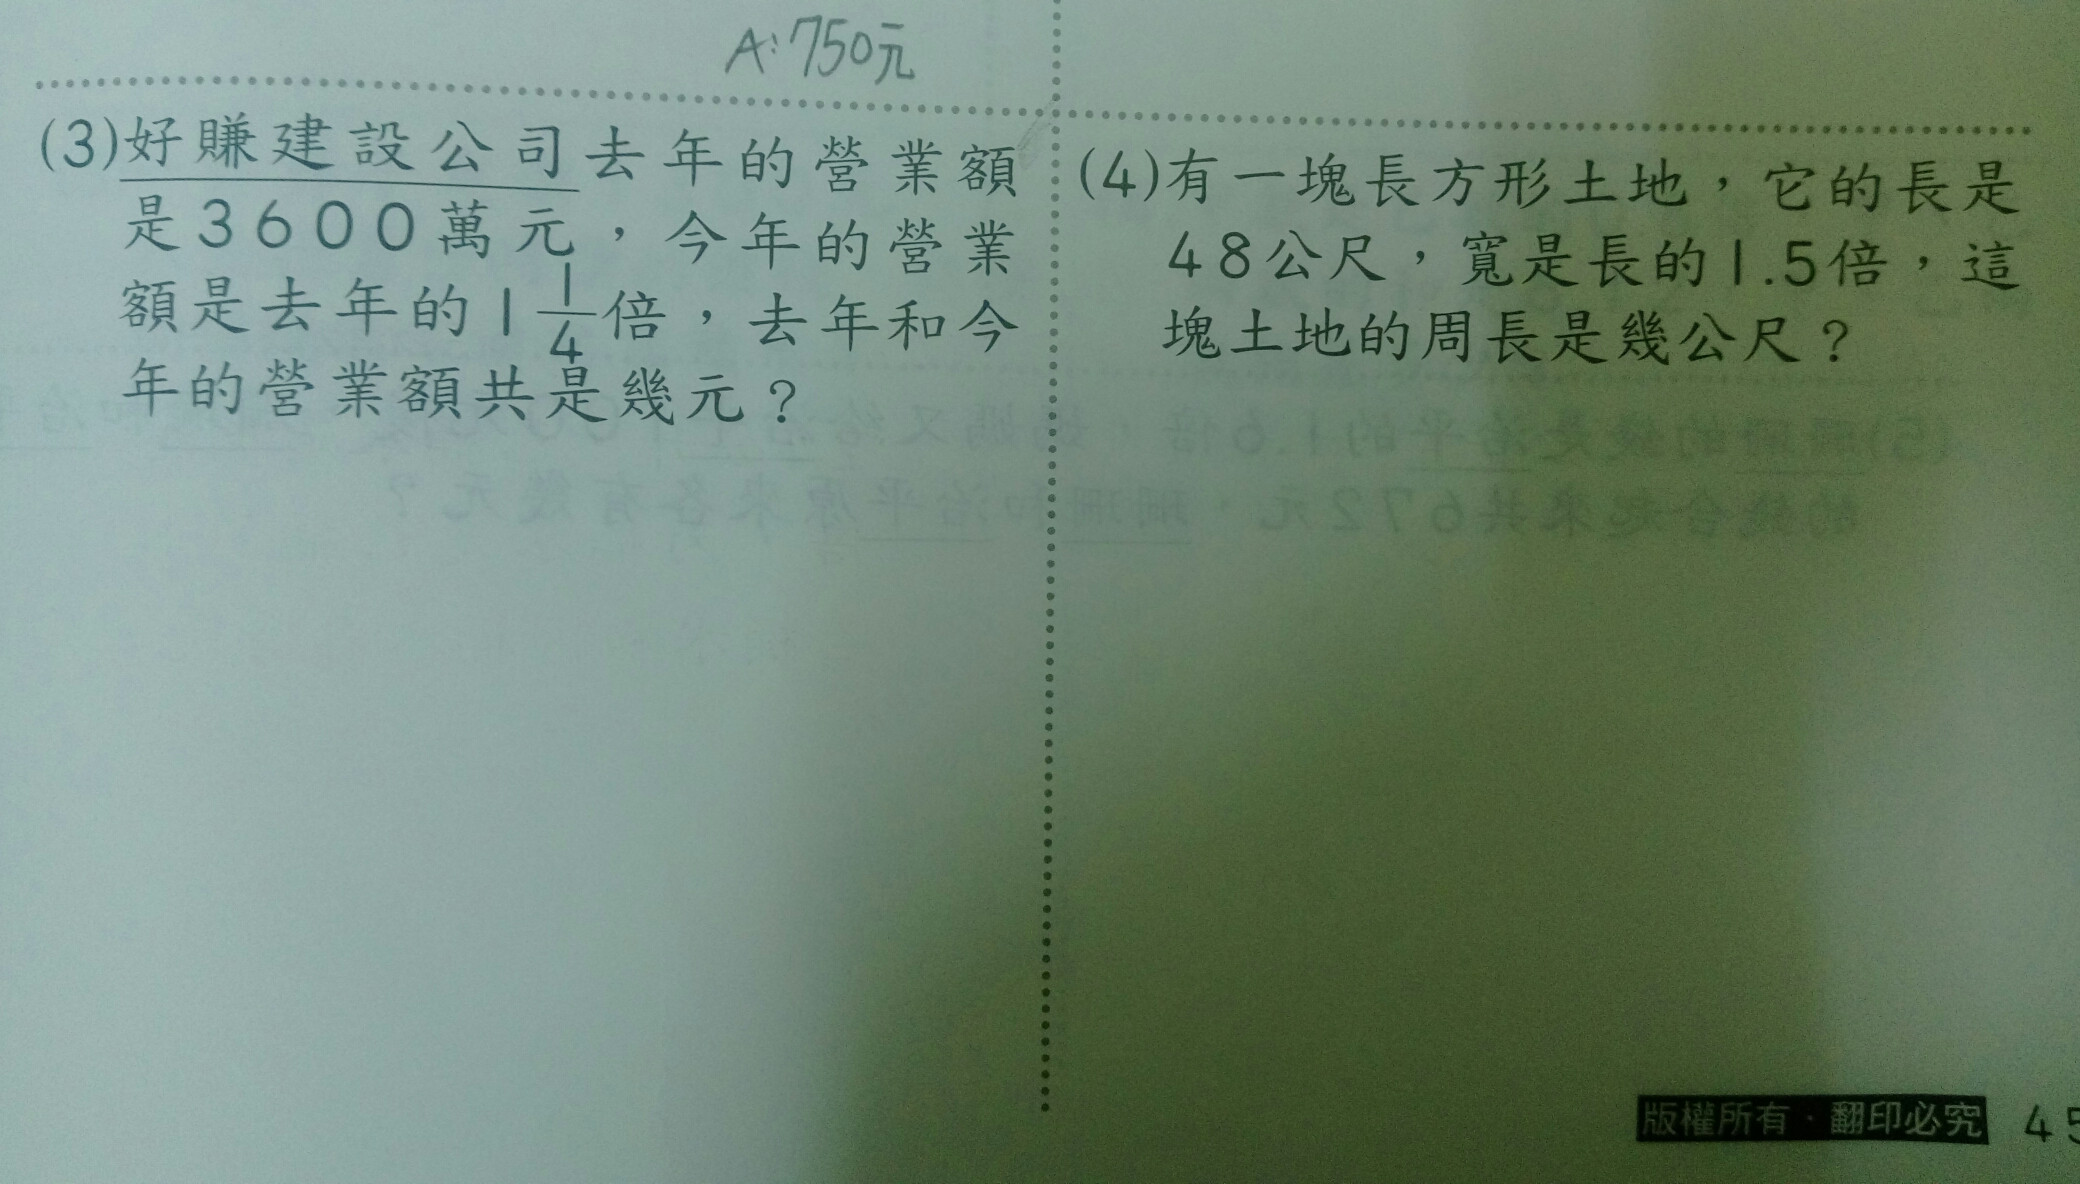 A:750元
(3)好賺建設公司去年的營業額
是3600萬元，今年的營業
額是去年的1 1/4倍，去年和今
年的營業額共是幾元？
(4)有一塊長方形土地，它的長是
48公尺，寬是長的1.5倍，這
塊土地的周長是幾公尺？
版權所有·翻印必究 45